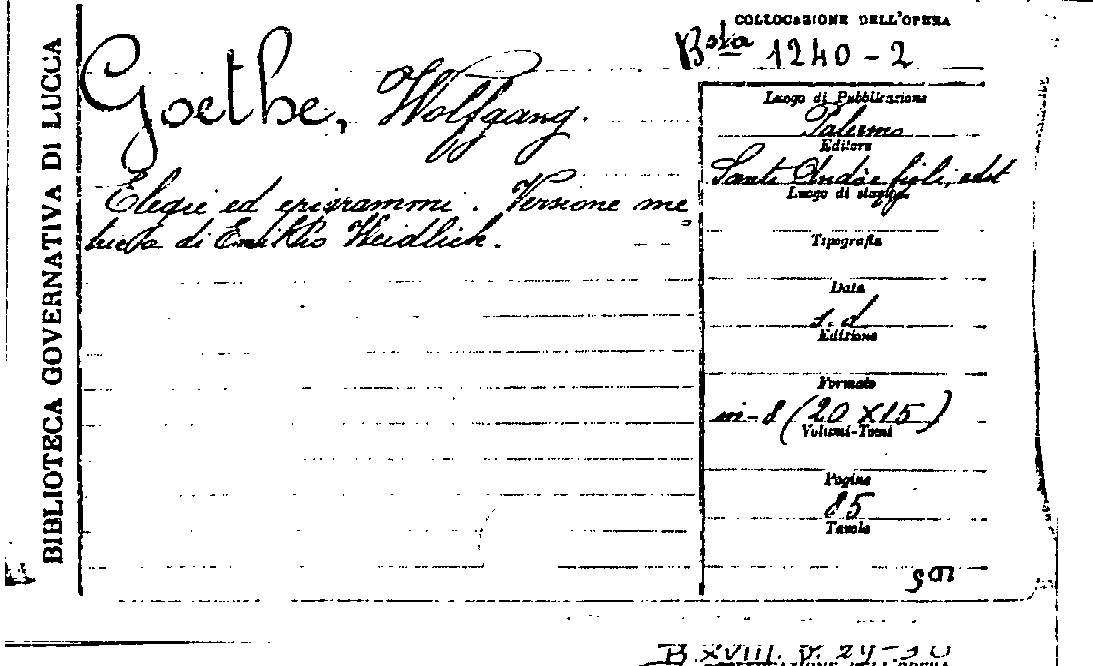 BIBLIOTECA GOVERNATIVA DI LUCCA
COLLOCAZIONE DELL'OPERA
Bsta 1240-2
Goethe, Wolfgang.
Elegie ed epigrammi. Versione me
trica di Emilio Weidlich.
Luogo di Pubblicazione
Palermo
Editore
Santi Andò e figli, edit
Luogo di stampa
Tipografia
Data
s.d
Edizione
Formato
in-8 (20X15)
Volumi-Tomi
Pagine
85
Tavole
B XVIII. D.